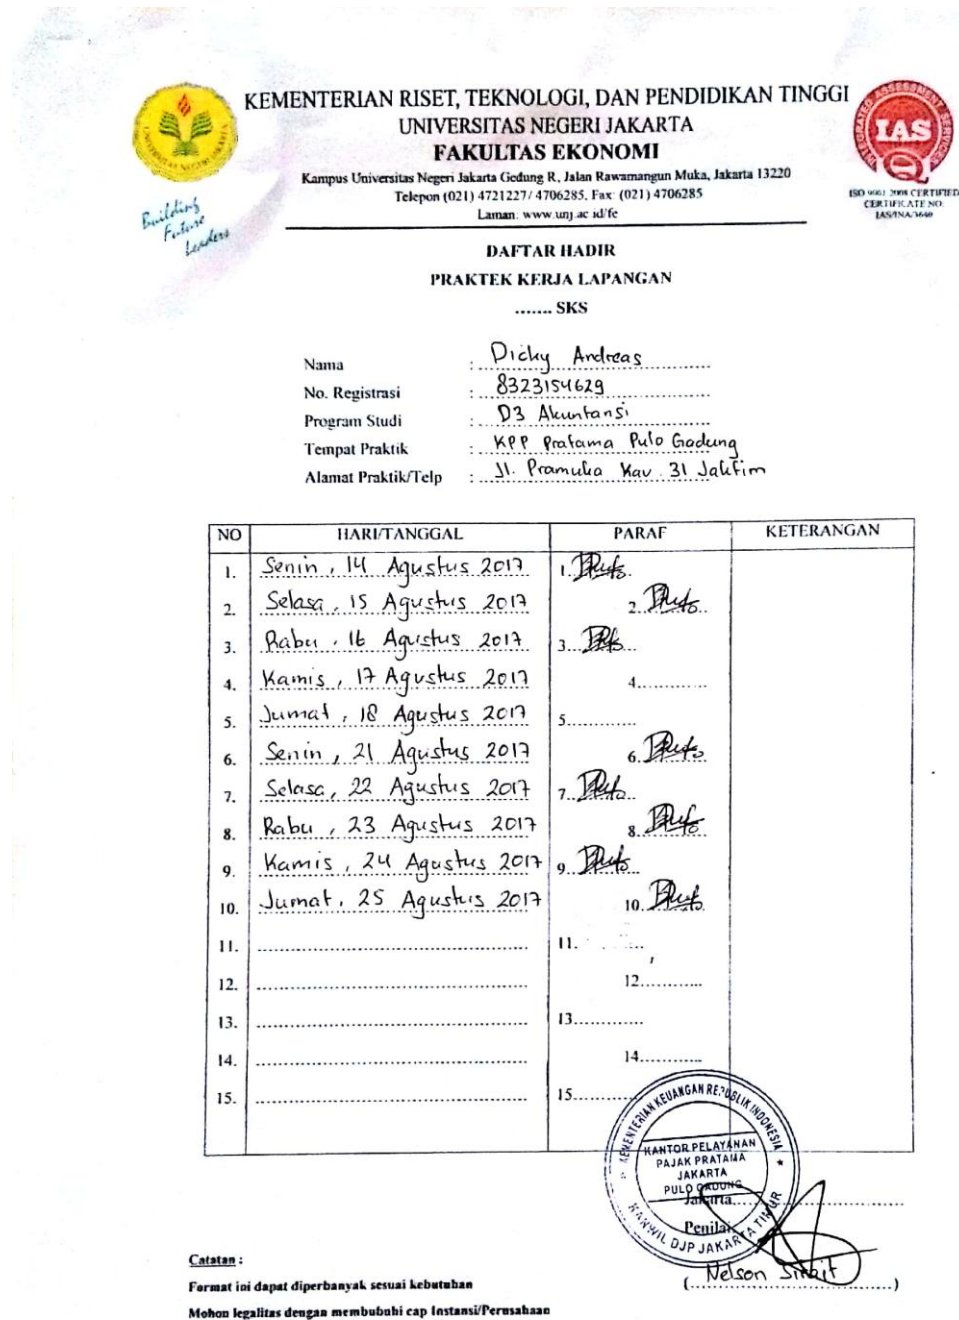 KEMENTERIAN RISET, TEKNOLOGI, DAN PENDIDIKAN TINGGI
UNIVERSITAS NEGERI JAKARTA
FAKULTAS EKONOMI
Kampus Universitas Negeri Jakarta Gedung R, Jalan Rawamangun Muka, Jakarta 13220
Telepon (021) 4721227/ 4706285, Fax: (021) 4706285
Laman: www.unj.ac.id/fe
Building
Future
Leaders
INTEGRATED ASSESSMENT SERVICES
IAS
ISO 9001 2008 CERTIFIED
CERTIFICATE NO.
IAS/INA/3640
DAFTAR HADIR
PRAKTEK KERJA LAPANGAN
....... SKS
Nama : Dicky Andreas
No. Registrasi : 8323154629
Program Studi : D3 Akuntansi
Tempat Praktik : KPP Pratama Pulo Gadung
Alamat Praktik/Telp : Jl. Pramuka Kav. 31 Jaktim
NO HARI/TANGGAL PARAF KETERANGAN
1. Senin, 14 Agustus 2017 1.
2. Selasa, 15 Agustus 2017 2.
3. Rabu, 16 Agustus 2017 3.
4. Kamis, 17 Agustus 2017 4.............
5. Jumat, 18 Agustus 2017 5.............
6. Senin, 21 Agustus 2017 6.
7. Selasa, 22 Agustus 2017 7.
8. Rabu, 23 Agustus 2017 8.
9. Kamis, 24 Agustus 2017 9.
10. Jumat, 25 Agustus 2017 10.
11. 11.
12. 12............
13. 13.............
14. 14............
15. 15............
KEMENTERIAN KEUANGAN REPUBLIK INDONESIA
KANTOR PELAYANAN
PAJAK PRATAMA
JAKARTA
PULO GADUNG
KANWIL DJP JAKARTA TIMUR
Jakarta,
Penilai
(Nelson Sirait)
Catatan :
Format ini dapat diperbanyak sesuai kebutuhan
Mohon legalitas dengan membubuhi cap Instansi/Perusahaan